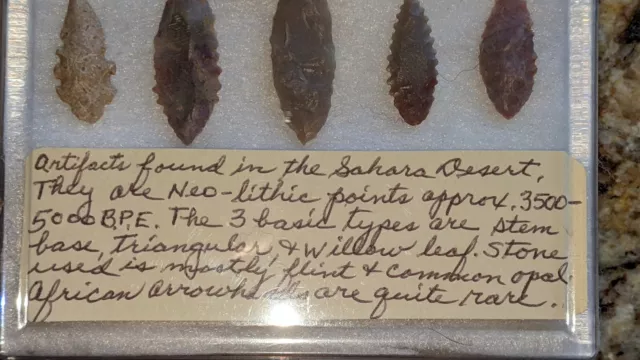 Artifacts found in the Sahara Desert.
They are Neo-lithic points approx. 3500-
5000 B.P.E. The 3 basic types are stem
base, triangular & willow leaf. Stone
used is mostly flint & common opal
African Arrowheads are quite rare.